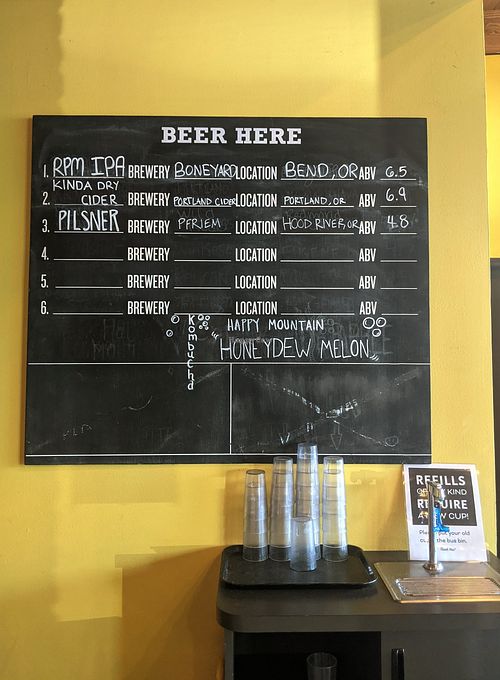 BEER HERE
1. RPM IPA BREWERY BONEYARD LOCATION BEND, OR ABV 6.5
KINDA DRY
2. CIDER BREWERY PORTLAND CIDER LOCATION PORTLAND, OR ABV 6.9
3. PILSNER BREWERY PFRIEM LOCATION HOOD RIVER, OR ABV 4.8
4. BREWERY LOCATION ABV
5. BREWERY LOCATION ABV
6. BREWERY LOCATION ABV
Kombucha
HAPPY MOUNTAIN
"HONEYDEW MELON"
REFILLS
KIND
REQUIRE
A NEW CUP!
Please put your old
in the bus bin.